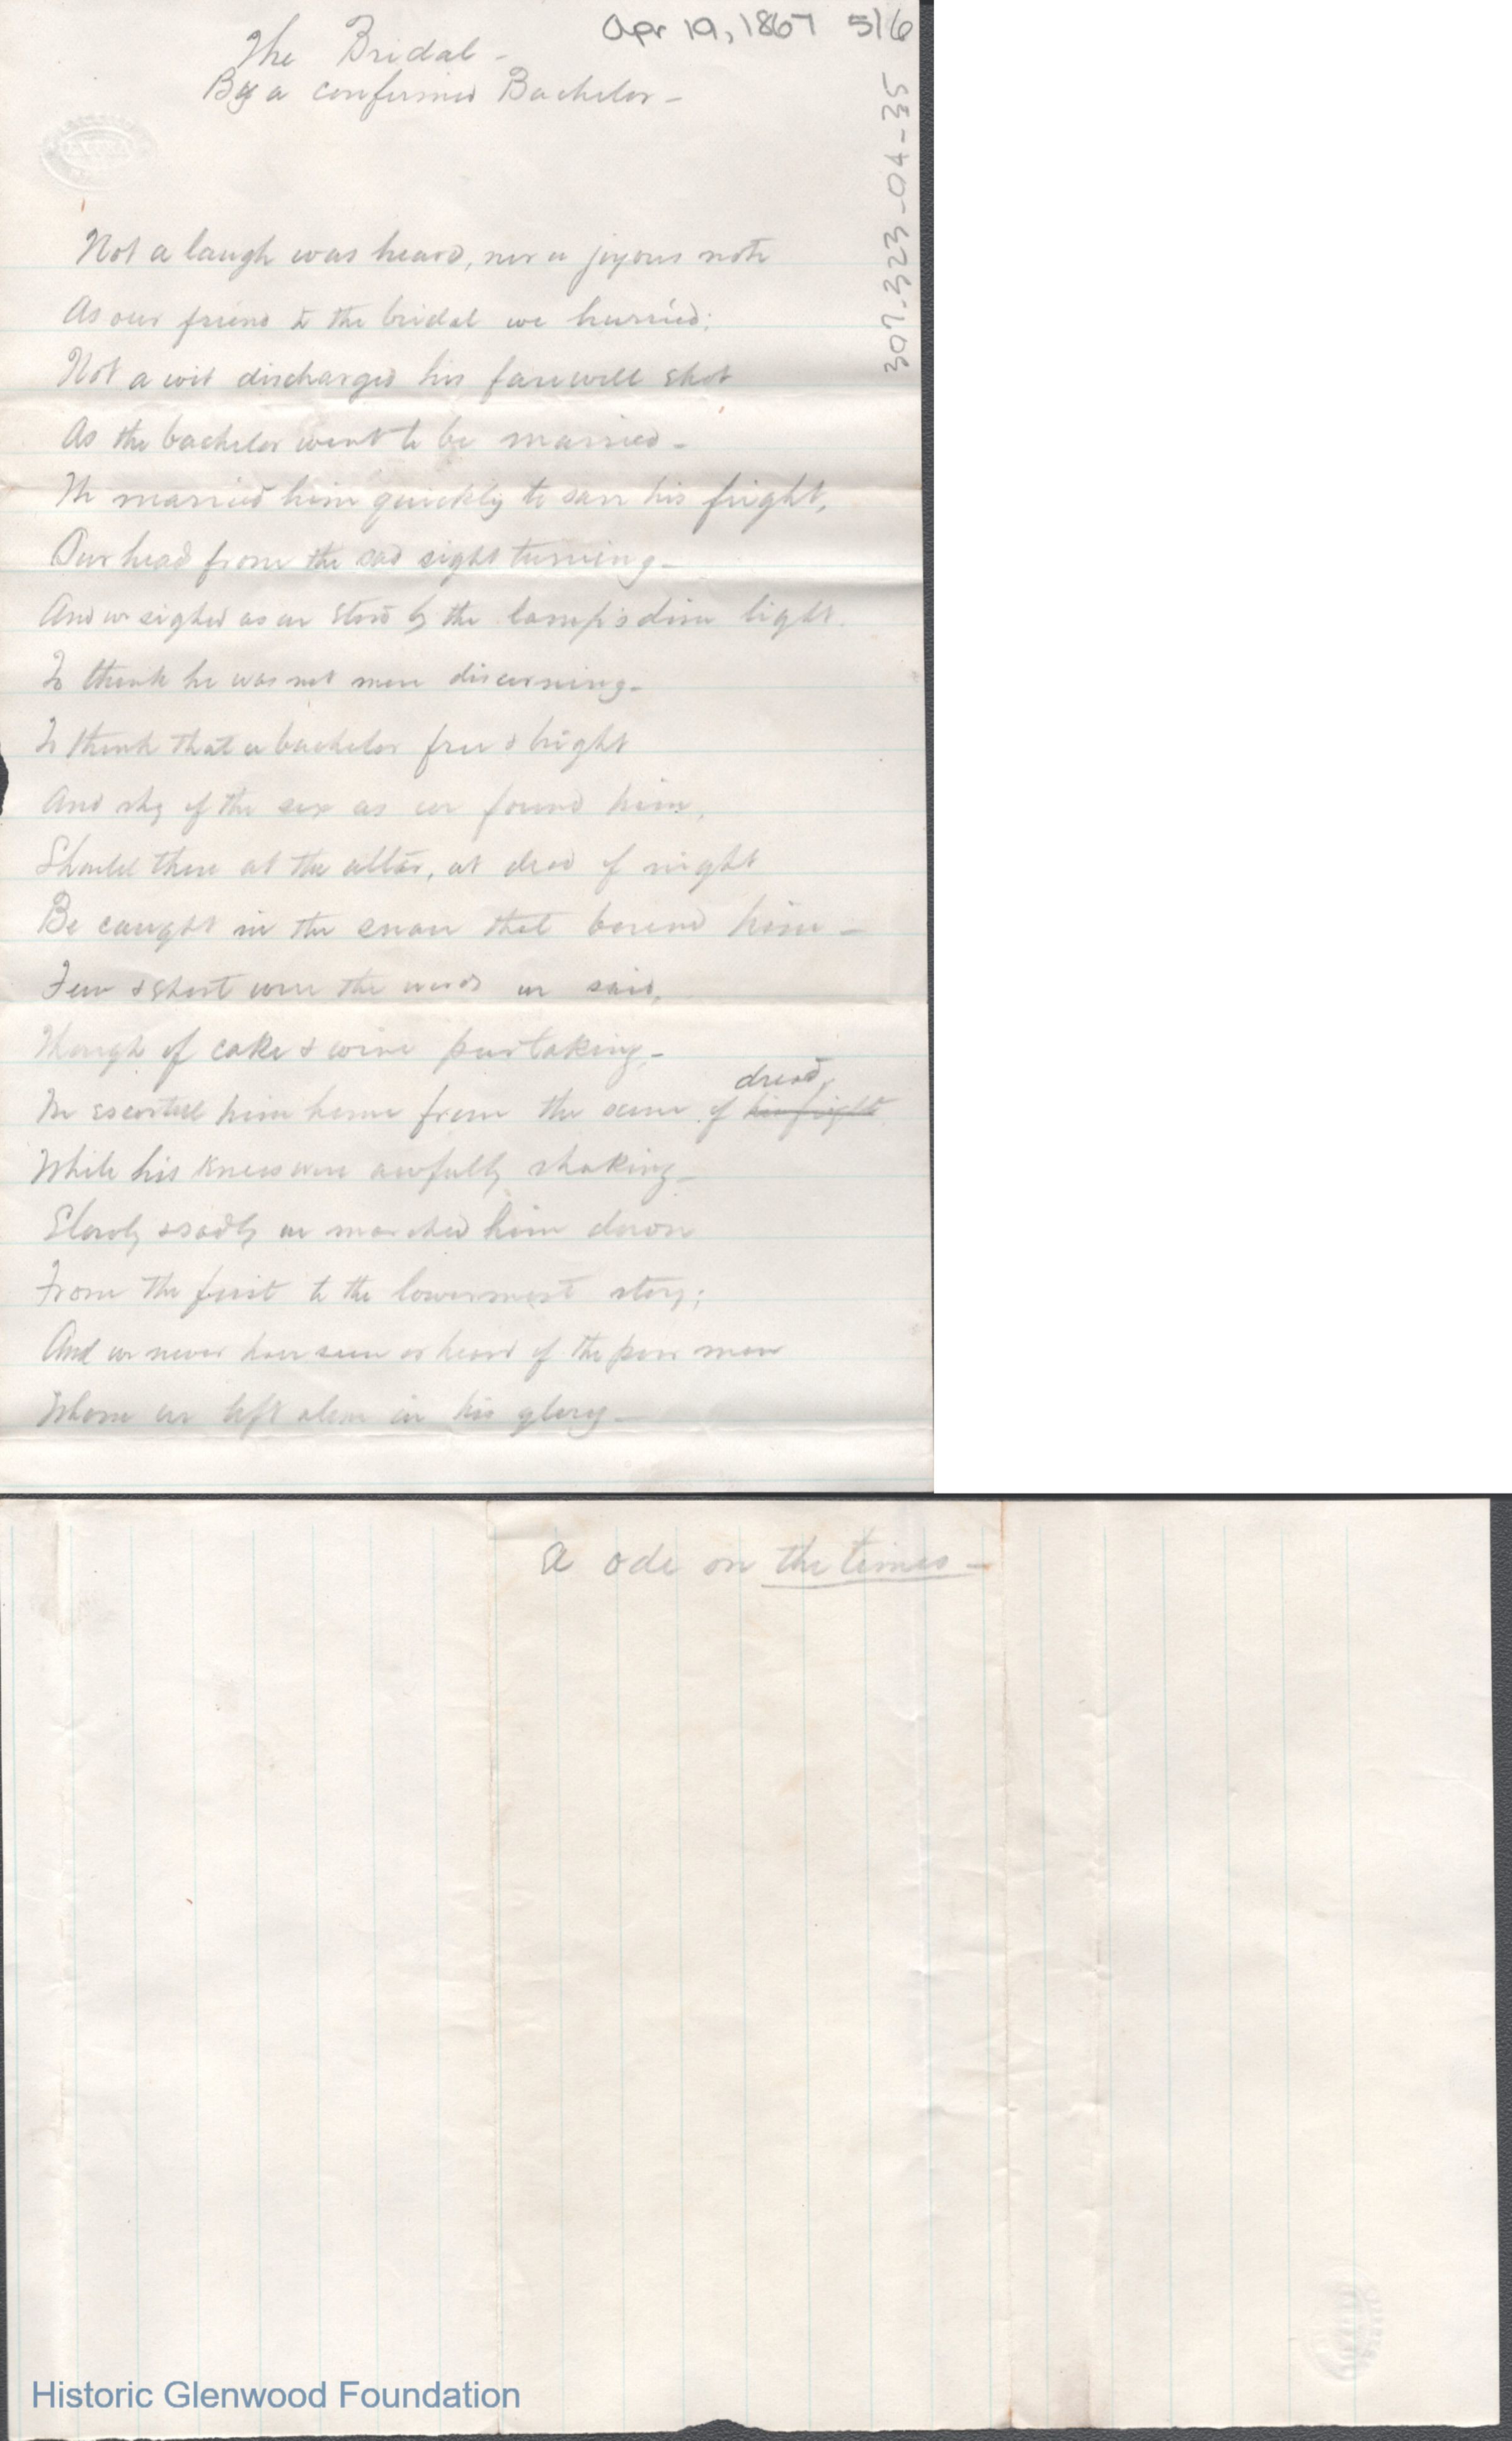 Apr 19, 1867 5/6
The Bridal -
By a confirmed Bachelor -
307.323-04-35
Not a laugh was heard, nor a joyous note
As our friend to the bridal we hurried;
Not a wit discharged his farewell shot
As the bachelor went to be married -
We married him quickly to save his fright,
Our head from the sad sight turning -
And we sighed as we stood by the lamp's dim light.
To think he was not more discerning -
To think that a bachelor free & bright
And shy of the sex as we found him,
Should there at the altar, at dead of night
Be caught in the snare that bound him -
Few & short were the words we said,
Though of cake & wine partaking -
dread,
We escorted him home from the scene of his fright
While his knees were awfully shaking -
Slowly & sadly we marched him down
From the first to the lowermost story;
And we never have seen or heard of the poor man
Whom we left alone in his glory -
A ode on the times -
Historic Glenwood Foundation